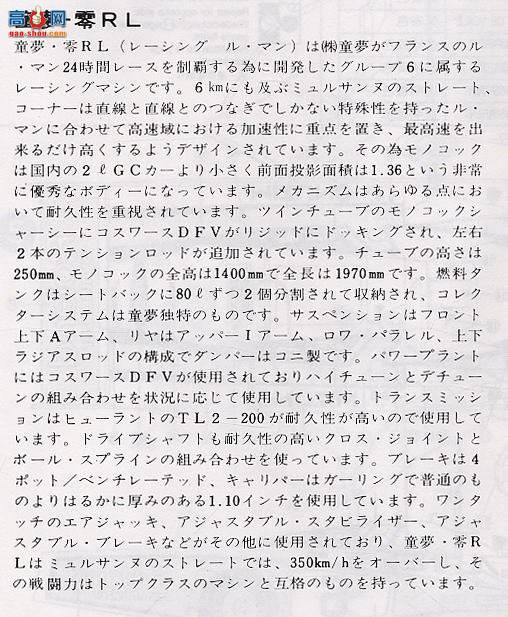 童夢・零RL
童夢・零RL(レーシング ル・マン)は㈱童夢がフランスのル
・マン24時間レースを制覇する為に開発したグループ6に属する
レーシングマシンです。6㎞にも及ぶミュルサンヌのストレート、
コーナーは直線と直線とのつなぎでしかない特殊性を持ったル・
マンに合わせて高速域における加速性に重点を置き、最高速を出
来るだけ高くするようデザインされています。その為モノコック
は国内の2ℓGCカーより小さく前面投影面積は1.36という非常
に優秀なボディーになっています。メカニズムはあらゆる点にお
いて耐久性を重視されています。ツインチューブのモノコックシ
ャーシーにコスワースDFVがリジッドにドッキングされ、左右
2本のテンションロッドが追加されています。チューブの高さは
250㎜、モノコックの全高は1400㎜で全長は1970㎜です。燃料タ
ンクはシートバックに80ℓずつ2個分割されて収納され、コレク
ターシステムは童夢独特のものです。サスペンションはフロント
上下Aアーム、リヤはアッパーIアーム、ロワ・パラレル、上下
ラジアスロッドの構成でダンパーはコニ製です。パワープラント
にはコスワースDFVが使用されておりハイチューンとデチュー
ンの組み合わせを状況に応じて使用しています。トランスミッシ
ョンはヒューラントのTL2-200が耐久性が高いので使用して
います。ドライブシャフトも耐久性の高いクロス・ジョイントと
ボール・スプラインの組み合わせを使っています。ブレーキは4
ポット/ベンチレーテッド、キャリパーはガーリングで普通のも
のよりはるかに厚みのある1.10インチを使用しています。ワンタ
ッチのエアジャッキ、アジャスタブル・スタビライザー、アジャ
スタブル・ブレーキなどがその他に使用されており、童夢・零R
Lはミュルサンヌのストレートでは、350km/hをオーバーし、そ
の戦闘力はトップクラスのマシンと互格のものを持っています。